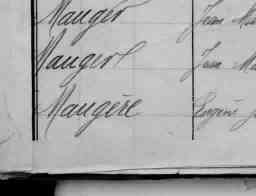 Mauger Jean Ma
Mauger Jean Ma
Maugère Eugène J